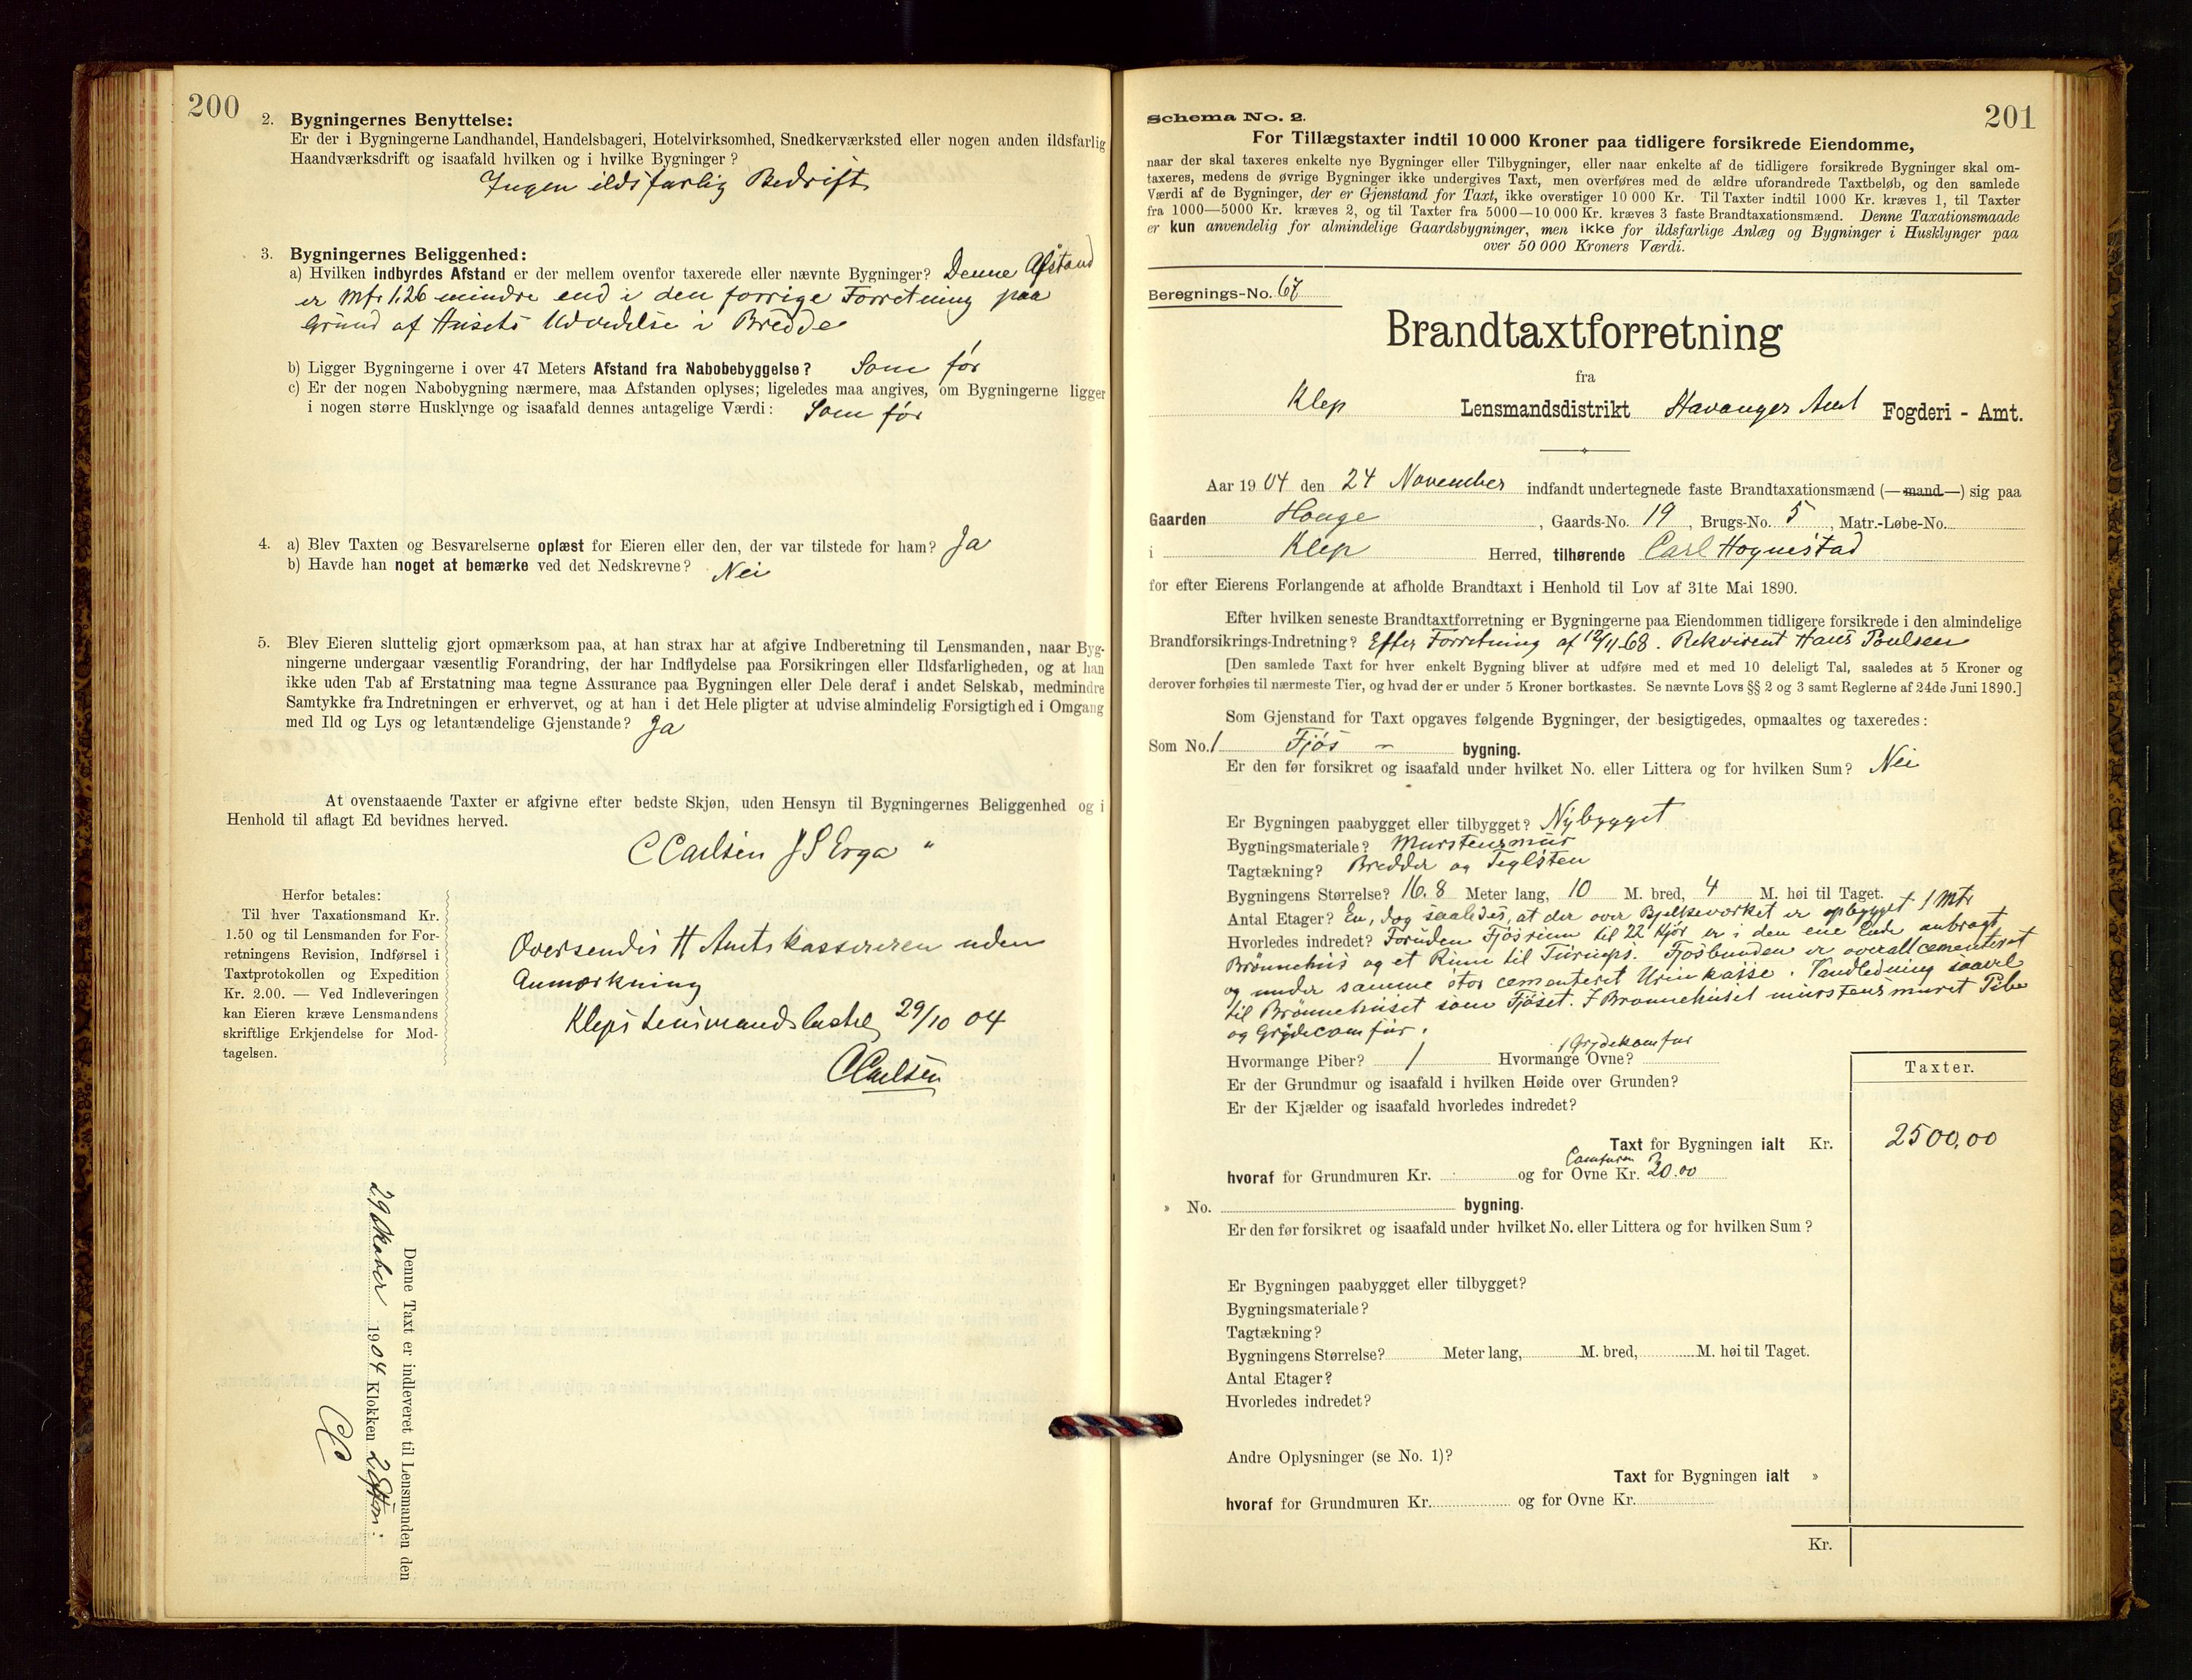 200
2. Bygningernes Benyttelse:
Er der i Bygningerne Landhandel, Handelsbageri, Hotelvirksomhed, Snedkerværksted eller nogen anden ildsfarlig
Haandværksdrift og isaafald hvilken og i hvilke Bygninger?
Ingen ildsfarlig Bedrift
3. Bygningernes Beliggenhed:
a) Hvilken indbyrdes Afstand er der mellem ovenfor taxerede eller nævnte Bygninger? Denne Afstand
er Mtr 1.26 mindre end i den forrige Forretning paa
Grund af Husets Udvidelse i Bredde
b) Ligger Bygningerne i over 47 Meters Afstand fra Nabobebyggelse? Som før
c) Er der nogen Nabobygning nærmere, maa Afstanden oplyses; ligeledes maa angives, om Bygningerne ligger
i nogen større Husklynge og isaafald dennes antagelige Værdi: Som før
4. a) Blev Taxten og Besvarelserne oplæst for Eieren eller den, der var tilstede for ham? Ja
b) Havde han noget at bemærke ved det Nedskrevne? Nei
5. Blev Eieren sluttelig gjort opmærksom paa, at han strax har at afgive Indberetning til Lensmanden, naar Byg-
ningerne undergaar væsentlig Forandring, der har Indflydelse paa Forsikringen eller Ildsfarligheden, og at han
ikke uden Tab af Erstatning maa tegne Assurance paa Bygningen eller Dele deraf i andet Selskab, medmindre
Samtykke fra Indretningen er erhvervet, og at han i det Hele pligter at udvise almindelig Forsigtighed i Omgang
med Ild og Lys og letantændelige Gjenstande? Ja
At ovenstaaende Taxter er afgivne efter bedste Skjøn, uden Hensyn til Bygningernes Beliggenhed og i
Henhold til aflagt Ed bevidnes herved.
C Carlsen J S Erga "
Herfor betales:
Til hver Taxationsmand Kr.
1.50 og til Lensmanden for For-
retningens Revision, Indførsel i
Taxtprotokollen og Expedition
Kr. 2.00. — Ved Indleveringen
kan Eieren kræve Lensmandens
skriftlige Erkjendelse for Mod-
tagelsen.
Oversendes Hr Amtskassereren uden
Anmærkning
Kleps Lensmandsbestil 29/10 04
C Carlsen
Denne Taxt er indleveret til Lensmanden den
29 Oktober 1904 Klokken 2 Eftm:
CC
201
Schema No. 2.
For Tillægstaxter indtil 10 000 Kroner paa tidligere forsikrede Eiendomme,
naar der skal taxeres enkelte nye Bygninger eller Tilbygninger, eller naar enkelte af de tidligere forsikrede Bygninger skal om-
taxeres, medens de øvrige Bygninger ikke undergives Taxt, men overføres med de ældre uforandrede Taxtbeløb, og den samlede
Værdi af de Bygninger, der er Gjenstand for Taxt, ikke overstiger 10 000 Kr. Til Taxter indtil 1000 Kr. kræves 1, til Taxter
fra 1000—5000 Kr. kræves 2, og til Taxter fra 5000—10 000 Kr. kræves 3 faste Brandtaxationsmænd. Denne Taxationsmaade
er kun anvendelig for almindelige Gaardsbygninger, men ikke for ildsfarlige Anlæg og Bygninger i Husklynger paa
over 50 000 Kroners Værdi.
Beregnings-No. 67
Brandtaxtforretning
fra
Klep Lensmandsdistrikt Stavanger Amt Fogderi - Amt.
Aar 1904 den 24 November indfandt undertegnede faste Brandtaxationsmænd (—mand—) sig paa
Gaarden Houge, Gaards-No. 19, Brugs-No. 5, Matr.-Løbe-No.
i Klep Herred, tilhørende Carl Hognestad
for efter Eierens Forlangende at afholde Brandtaxt i Henhold til Lov af 31te Mai 1890.
Efter hvilken seneste Brandtaxtforretning er Bygningerne paa Eiendommen tidligere forsikrede i den almindelige
Brandforsikrings-Indretning? Efter Forretning af 12/11 68. Rekvirent Hans Poulsen
[Den samlede Taxt for hver enkelt Bygning bliver at udføre med et med 10 deleligt Tal, saaledes at 5 Kroner og
derover forhøies til nærmeste Tier, og hvad der er under 5 Kroner bortkastes. Se nævnte Lovs §§ 2 og 3 samt Reglerne af 24de Juni 1890.]
Som Gjenstand for Taxt opgaves følgende Bygninger, der besigtigedes, opmaaltes og taxeredes:
Som No. 1 Fjøs — bygning.
Er den før forsikret og isaafald under hvilket No. eller Littera og for hvilken Sum? Nei
Er Bygningen paabygget eller tilbygget? Nybygget
Bygningsmateriale? Murstensmur
Tagtækning? Bredder og Teglsten
Bygningens Størrelse? 16.8 Meter lang, 10 M. bred, 4 M. høi til Taget.
Antal Etager? En, dog saaledes, at der over Bjelkeværket er opbygget 1 Mtr
Hvorledes indredet? Foruden Fjøsrum til 22 Kjør er i den ene Ende anbragt
Brønnehus og et Rum til Turnips. Fjøsbunden er overalt cementeret
og under samme stor cementeret Urinkasse. Vandledning saavel
til Brønnehuset som Fjøset. I Brønnehuset murstensmuret Pibe
og Grydecomfur.
Hvormange Piber? 1 Hvormange Ovne? 1 Grydekomfur
Er der Grundmur og isaafald i hvilken Høide over Grunden?
Er der Kjælder og isaafald hvorledes indredet?
Taxter.
Taxt for Bygningen ialt Kr. 2500,00
hvoraf for Grundmuren Kr. og for Comfuren Ovne Kr. 20.00
» No. bygning.
Er den før forsikret og isaafald under hvilket No. eller Littera og for hvilken Sum?
Er Bygningen paabygget eller tilbygget?
Bygningsmateriale?
Tagtækning?
Bygningens Størrelse? Meter lang, M. bred, M. høi til Taget.
Antal Etager?
Hvorledes indredet?
Andre Oplysninger (se No. 1)?
Taxt for Bygningen ialt »
hvoraf for Grundmuren Kr. og for Ovne Kr.
Kr.